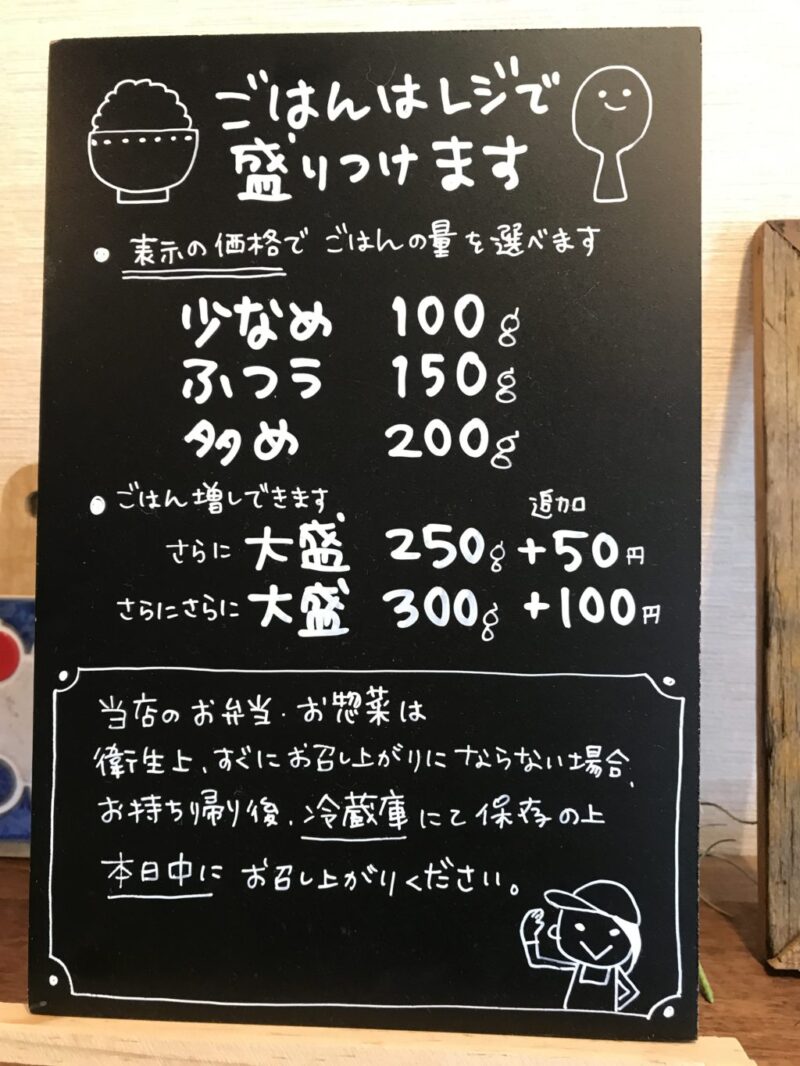 ごはんはレジで
盛りつけます
● 表示の価格で ごはんの量を選べます
少なめ 100g
ふつう 150g
多め 200g
● ごはん増しできます。 追加
さらに 大盛 250g +50円
さらにさらに 大盛 300g +100円
当店のお弁当・お惣菜は
衛生上、すぐにお召し上がりにならない場合、
お持ち帰り後、冷蔵庫にて保存の上
本日中にお召し上がりください。